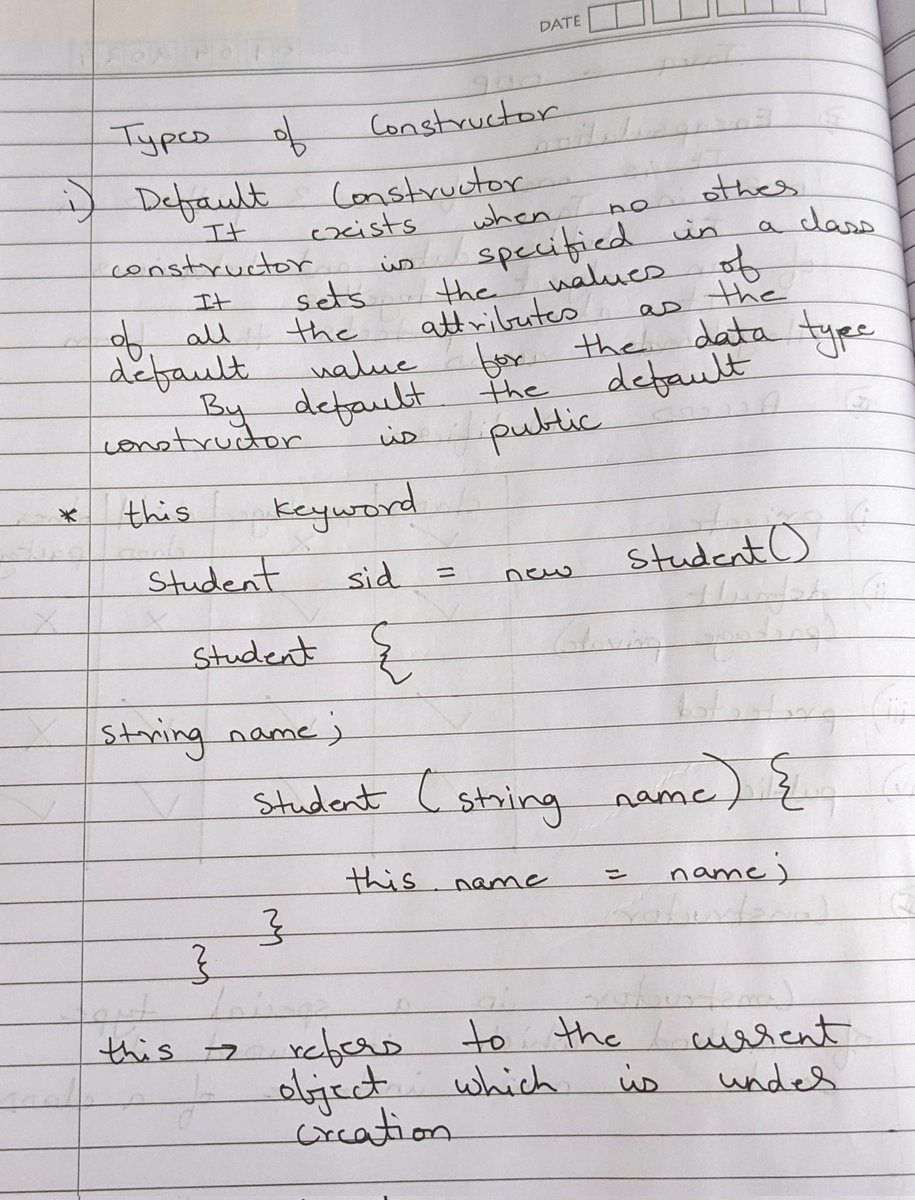 DATE
Types of Constructor
i) Default Constructor
It exists when no other
constructor is specified in a class
It sets the values of
of all the attributes as the
default value for the data type
By default the default
constructor is public
* this keyword
Student sid = new Student()
Student {
string name;
Student (string name) {
this.name = name;
}
}
this → refers to the current
object which is under
creation